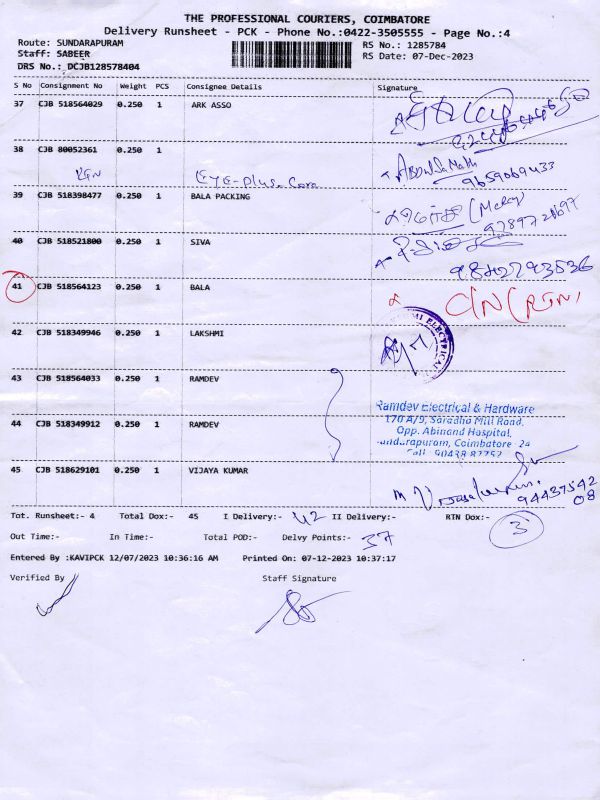 THE PROFESSIONAL COURIERS, COIMBATORE
Delivery Runsheet - PCK - Phone No.:0422-3505555 - Page No.:4
Route: SUNDARAPURAM RS No.: 1285784
Staff: SABEER RS Date: 07-Dec-2023
DRS No.: DCJB128578404
S No Consignment No Weight PCS Consignee Details Signature
37 CJB 518564029 0.250 1 ARK ASSO
38 CJB 80052361 0.250 1
RTN Eye-Plus.Com 9659069433
39 CJB 518398477 0.250 1 BALA PACKING
40 CJB 518521800 0.250 1 SIVA
9842793536
41 CJB 518564123 0.250 1 BALA C/N (RTN)
42 CJB 518349946 0.250 1 LAKSHMI
43 CJB 518564033 0.250 1 RAMDEV
Ramdev Electrical & Hardware
170 A/9, Saradha Mill Road,
44 CJB 518349912 0.250 1 RAMDEV Opp. Abinand Hospital,
Sundarapuram, Coimbatore-24
Cell: 90438 82752
45 CJB 518629101 0.250 1 VIJAYA KUMAR
94437542
08
Tot. Runsheet:- 4 Total Dox:- 45 I Delivery:- 42 II Delivery:- RTN Dox:- 3
Out Time:- In Time:- Total POD:- Delvy Points:- 37
Entered By :KAVIPCK 12/07/2023 10:36:16 AM Printed On: 07-12-2023 10:37:17
Verified By Staff Signature